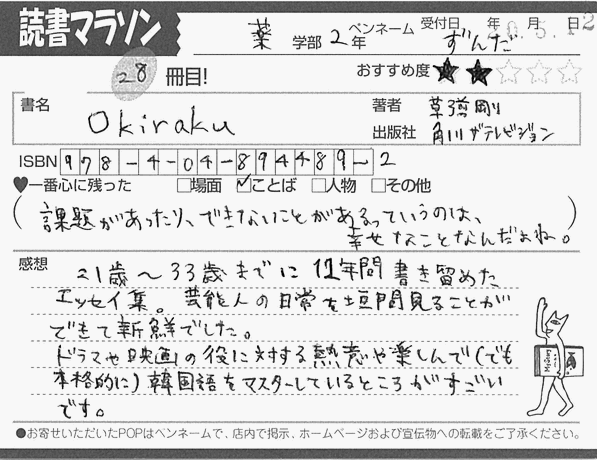 読書マラソン
薬 学部 2年 ペンネーム ずんだ 受付日 年 月 日
10.5.12
28 冊目!
おすすめ度 ★★☆☆☆
書名 Okiraku
著者 草彅剛
出版社 角川ザテレビジョン
ISBN 978-4-04-894489-2
♥一番心に残った □場面 ☑ことば □人物 □その他
(課題があったり、できないことがあるっていうのは、
幸せなことなんだよね。)
感想 21歳~33歳までに12年間書き留めた
エッセイ集。芸能人の日常を垣間見ることが
できて新鮮でした。
ドラマや映画の役に対する熱意や楽しんで(でも
本格的に)韓国語をマスターしているところがすごい
です。
●お寄せいただいたPOPはペンネームで、店内で掲示、ホームページおよび宣伝物への転載をご了承ください。